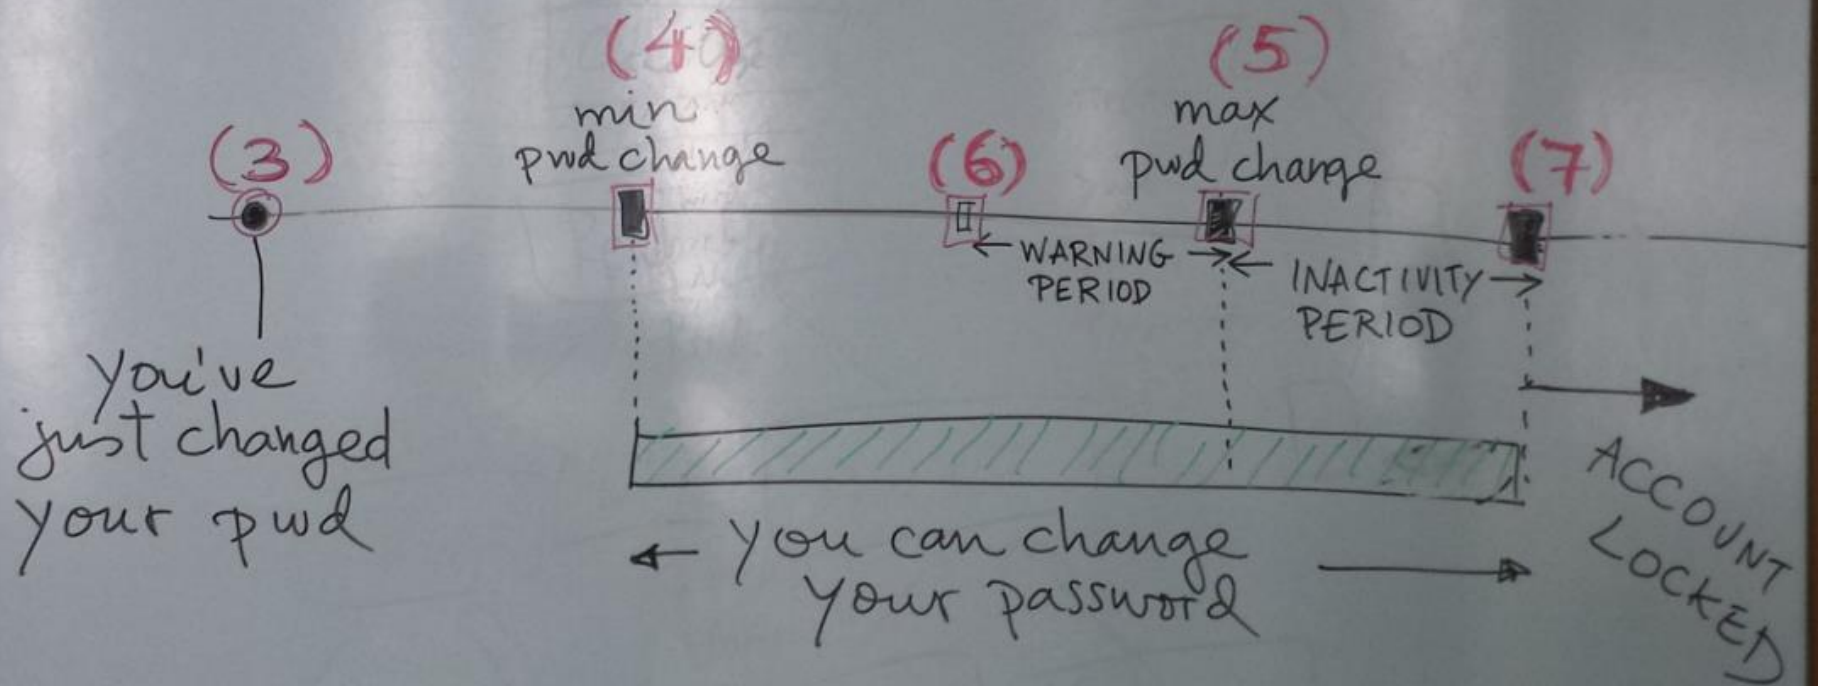 (4)
(5)
min
max
(3)
pwd change
(6)
pwd change
(7)
WARNING
PERIOD
INACTIVITY
PERIOD
you've
just changed
your pwd
you can change
your password
ACCOUNT
LOCKED